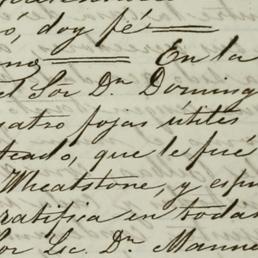 ó, doy fé
En la
el Sor Dn Doming
uatro fojas útiles
que le fué
Wheatstone, y espu
ratifica en todas
or Lic. Dn Manue